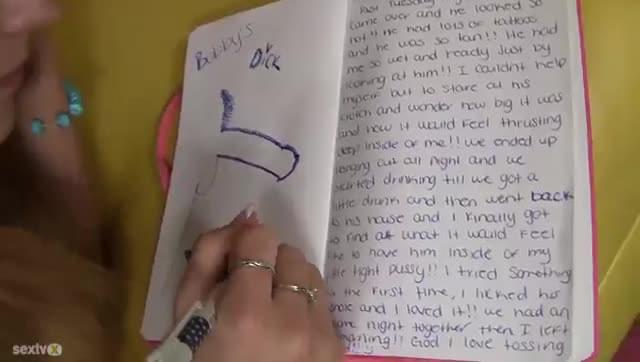 Bobby's
Dick
last Tuesday
came over and he looked so
hot!! He had lots of tattoos
and he was so tan!! He had
me so wet and ready just by
looking at him!! I couldnt help
myself but to stare at his
crotch and wonder how big it was
and how it would feel thrusting
deep inside of me!! we ended up
hanging out all night and we
started drinking till we got a
little drunk and then went back
to his house and I finally got
to find out what it would feel
like to have him inside of my
little tight pussy!! I tried something
the first time, I licked his
and I loved it!! we had an
night together then I left
God I love tossing
sextvx